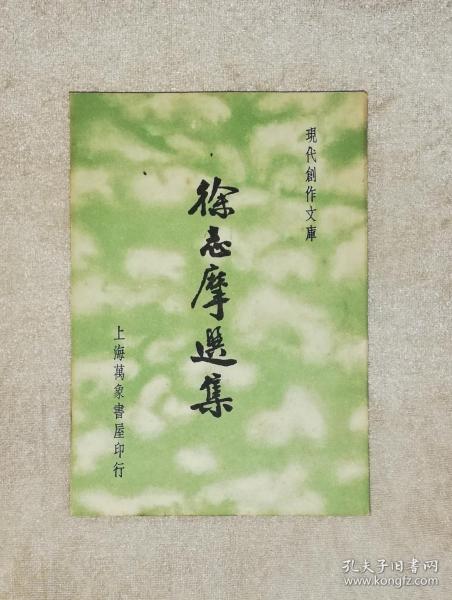 現代創作文庫
徐志摩選集
上海萬象書屋印行
孔夫子旧书网
www.kongfz.com